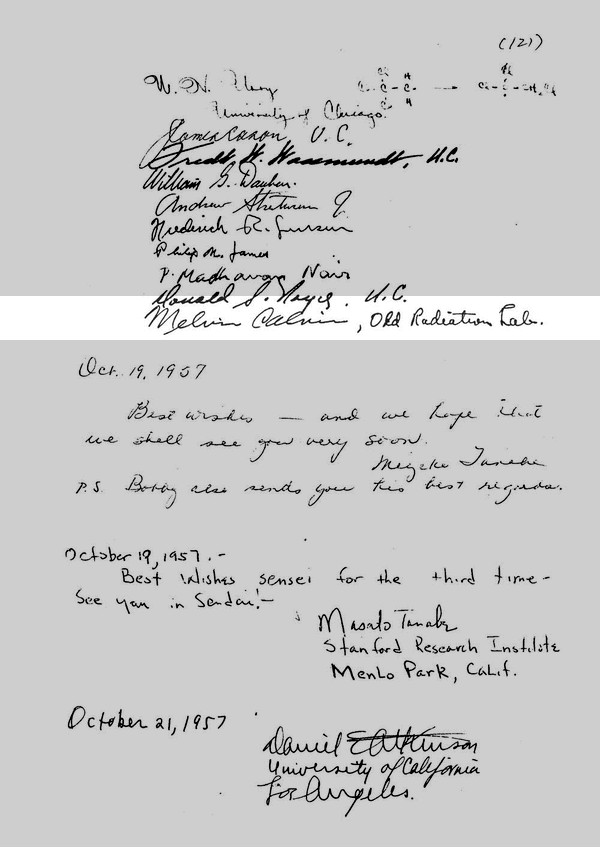 (121)
W. N.
University of Chicago.
U. C.
W. Wassmundt, U.C.
William G. Dauben.
Andrew Streitwieser Jr
Frederick R. Jensen
Philip M. James
P. Madhavan Nair
Donald S. Noyce, U.C.
Melvin Calvin, Old Radiation Lab.
Oct. 19, 1957
Best wishes — and we hope that
we shall see you very soon.
Mizeko Tanabe
P.S. Bobby also sends you his best regards.
October 19, 1957. -
Best Wishes sensei for the third time -
See you in Sendai! -
Masato Tanabe
Stanford Research Institute
Menlo Park, Calif.
October 21, 1957
Daniel E Atkinson
University of California
Los Angeles.